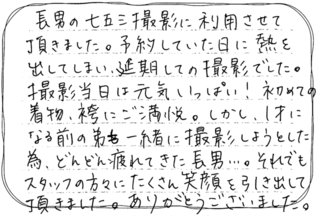 長男の七五三撮影に利用させて
頂きました。予約していた日に熱を
出してしまい、延期しての撮影でした。
撮影当日は元気いっぱい!初めての
着物、袴にご満悦。しかし、1才に
なる前の弟も一緒に撮影しようとした
為、どんどん疲れてきた長男…。それでも
スタッフの方々にたくさん笑顔を引き出して
頂きました。ありがとうございました。